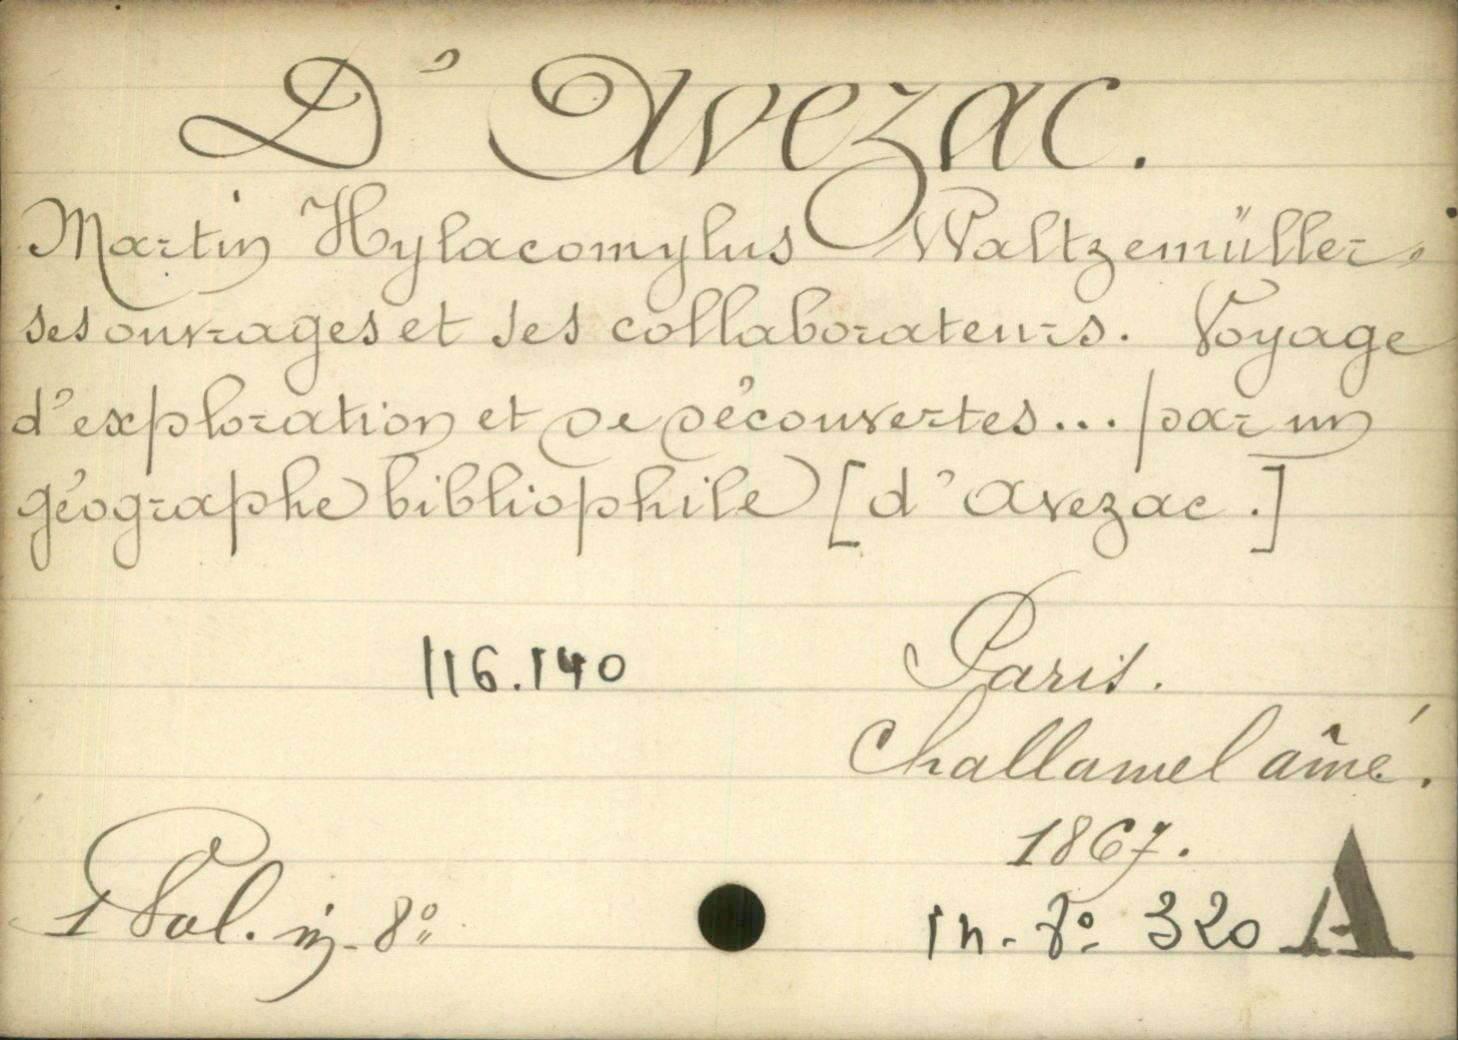 D'Avezac.
Martin Hylacomylus Waltzemüller,
ses ouvrages et ses collaborateurs. Voyage
d'exploration et de découvertes... par un
géographe bibliophile [d'Avezac.]
116.140
Paris.
Challamel aîné.
1867.
1 Vol. in-8º
in-8º 320 A